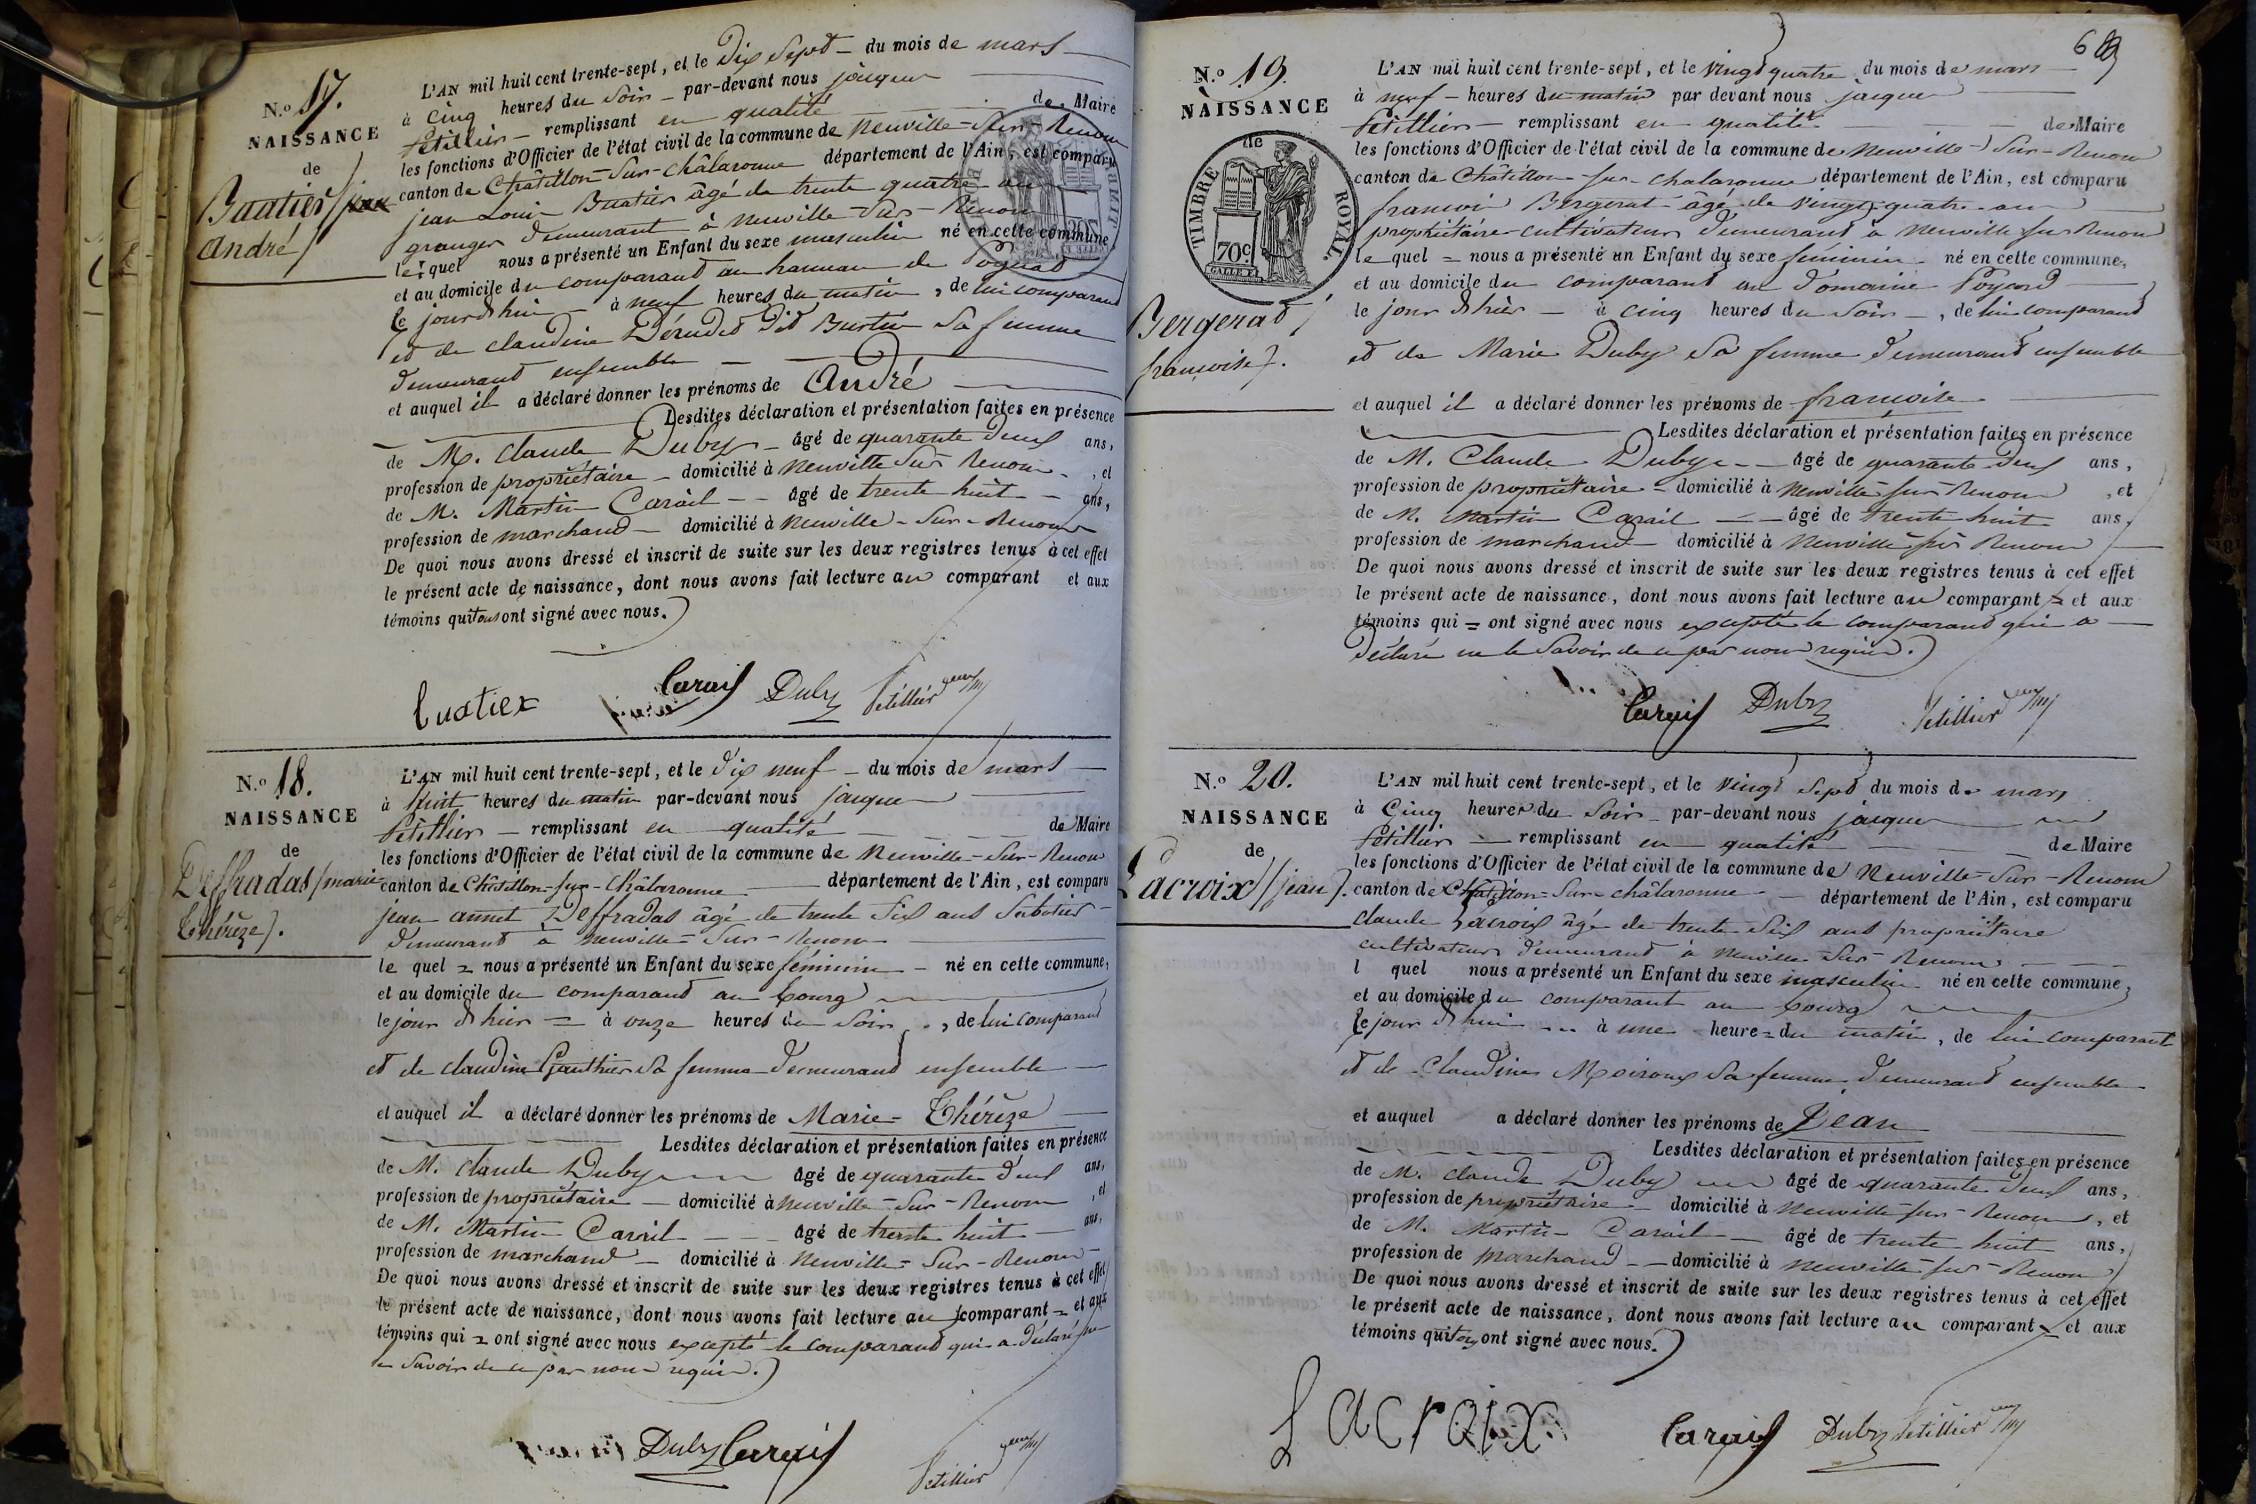 N.o 17.
NAISSANCE
de
Buatier / jean
André /
L'AN mil huit cent trente-sept, et le Dix Sept - du mois de mars
à cinq heures du soir - par-devant nous jacques
Petillier - remplissant en qualité de Maire
les fonctions d'Officier de l'état civil de la commune de Neuville-Sur-Renom
canton de Châtillon-Sur-châlaronne département de l'Ain, est comparu
jean Louis Buatier âgé de trente quatre ans
granger demeurant à Neuville-Sur-Renom
lequel nous a présenté un Enfant du sexe masculin né en cette commune,
et au domicile du comparand au hameau de
le jourd'hui à neuf heures du matin, de lui comparand
et de claudine dit Burtin sa femme
demeurant ensemble
et auquel il a déclaré donner les prénoms de André
Lesdites déclaration et présentation faites en présence
de M. Claude Duby - âgé de quarante deux ans,
profession de propriétaire - domicilié à Neuville Sur Renom -, et
de M. Martin Carail - - âgé de trente huit - ans,
profession de marchand - domicilié à Neuville-Sur-Renom
De quoi nous avons dressé et inscrit de suite sur les deux registres tenus à cet effet
le présent acte de naissance, dont nous avons fait lecture au comparant et aux
témoins qui tous ont signé avec nous.
buatier Carail Duby Petillier
N.o 18.
NAISSANCE
de
Deffradas / marie
Thérèze /.
L'AN mil huit cent trente-sept, et le dix neuf - du mois de mars
à huit heures du matin par-devant nous jacques
Petillier - remplissant en qualité de Maire
les fonctions d'Officier de l'état civil de la commune de Neuville-Sur-Renom
canton de Châtillon-sur-Châlaronne département de l'Ain, est comparu
jean annet Deffradas âgé de trente six ans Sabotier
demeurant à Neuville-Sur-Renom
le quel = nous a présenté un Enfant du sexe féminin - né en cette commune,
et au domicile du comparand au bourg
le jour d'hier = à onze heures du soir, de lui comparand
et de claudine Gauthier sa femme demeurand ensemble
et auquel il a déclaré donner les prénoms de Marie-Thérèze
Lesdites déclaration et présentation faites en présence
de M. Claude Duby âgé de quarante deux ans,
profession de propriétaire - domicilié à Neuville-Sur-Renom, et
de M. Martin Carail - - - âgé de trente huit ans,
profession de marchand - domicilié à Neuville-Sur-Renom
De quoi nous avons dressé et inscrit de suite sur les deux registres tenus à cet effet
le présent acte de naissance, dont nous avons fait lecture au comparant = et aux
témoins qui = ont signé avec nous excepté le comparand qui a déclaré ne
le savoir de ce par nous requis.
Duby Carail Petillier
69
N.o 19.
NAISSANCE
de
TIMBRE ROYAL.
70c
Bergerat /
francoise /.
L'AN mil huit cent trente-sept, et le vingt quatre du mois de mars
à neuf - heures du matin par devant nous jacques
Petillier - remplissant en qualité de Maire
les fonctions d'Officier de l'état civil de la commune de Neuville-Sur-Renom
canton de Châtillon-sur-chalaronne département de l'Ain, est comparu
francois Bergerat âgé de vingt quatre ans
propriétaire cultivateur demeurand à Neuville sur Renom
le quel = nous a présenté un Enfant du sexe féminin - né en cette commune,
et au domicile du comparand au domaine
le jour d'hier - à cinq heures du soir -, de lui comparand
et de Marie Duby sa femme demeurand ensemble
et auquel il a déclaré donner les prénoms de francoise
Lesdites déclaration et présentation faites en présence
de M. Claude Duby - - âgé de quarante deux ans,
profession de propriétaire - domicilié à Neuville-sur-Renom, et
de M. Martin Carail - - âgé de trente huit ans,
profession de marchand - domicilié à Neuville-sur Renom
De quoi nous avons dressé et inscrit de suite sur les deux registres tenus à cet effet
le présent acte de naissance, dont nous avons fait lecture au comparant = et aux
témoins qui = ont signé avec nous excepté le comparand qui a
déclaré ne le savoir de ce par nous requis.
Carail Duby Petillier
N.o 20.
NAISSANCE
de
Lacroix / jean /.
L'AN mil huit cent trente-sept, et le vingt sept du mois de mars
à cinq heures du soir - par-devant nous jacques
Petillier - remplissant en qualité de Maire
les fonctions d'Officier de l'état civil de la commune de Neuville-Sur-Renom
canton de Châtillon-Sur-châlaronne département de l'Ain, est comparu
claude Lacroix âgé de trente six ans propriétaire
cultivateur demeurand à Neuville-Sur-Renom
l quel nous a présenté un Enfant du sexe masculin né en cette commune,
et au domicile du comparant au bourg
le jour d'hui à une heure = du matin, de lui comparant
et de Claudine Moiroux sa femme demeurand ensemble
et auquel a déclaré donner les prénoms de Jean
Lesdites déclaration et présentation faites en présence
de M. Claude Duby âgé de quarante deux ans,
profession de propriétaire - domicilié à Neuville-sur-Renom, et
de M. Martin Carail - âgé de trente huit ans,
profession de marchand - domicilié à Neuville-sur-Renom
De quoi nous avons dressé et inscrit de suite sur les deux registres tenus à cet effet
le présent acte de naissance, dont nous avons fait lecture au comparant et aux
témoins qui tous ont signé avec nous.
Lacroix Carail Duby Petillier